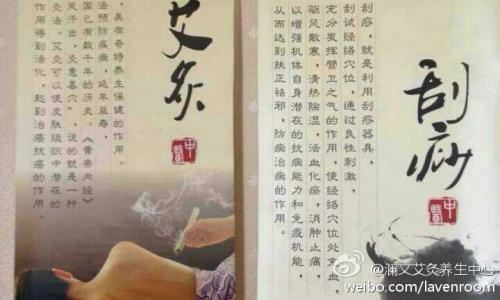 艾灸
中醫
，具有奇特养生保健的作用。
法预防疾病，延年益寿，
国已有数千年的历史。《黄帝内经》
风汗出，灸意喜穴，说的就是一种
灸法。艾灸可以使皮肤组织中潜在的
作用得到活化，起到治癌抗癌的作用。
刮痧
中醫
刮痧，就是利用刮痧器具，
刮试经络穴位，通过良性刺激，
充分发挥营卫之气的作用，使经络穴位处充血，
驱风散寒，清热除湿，活血化瘀，消肿止痛，
以增强机体自身潜在的抗病能力和免疫机能，
从而达到扶正祛邪，防病治病的作用。
@澜文艾灸养生中心
weibo.com/lavenroom